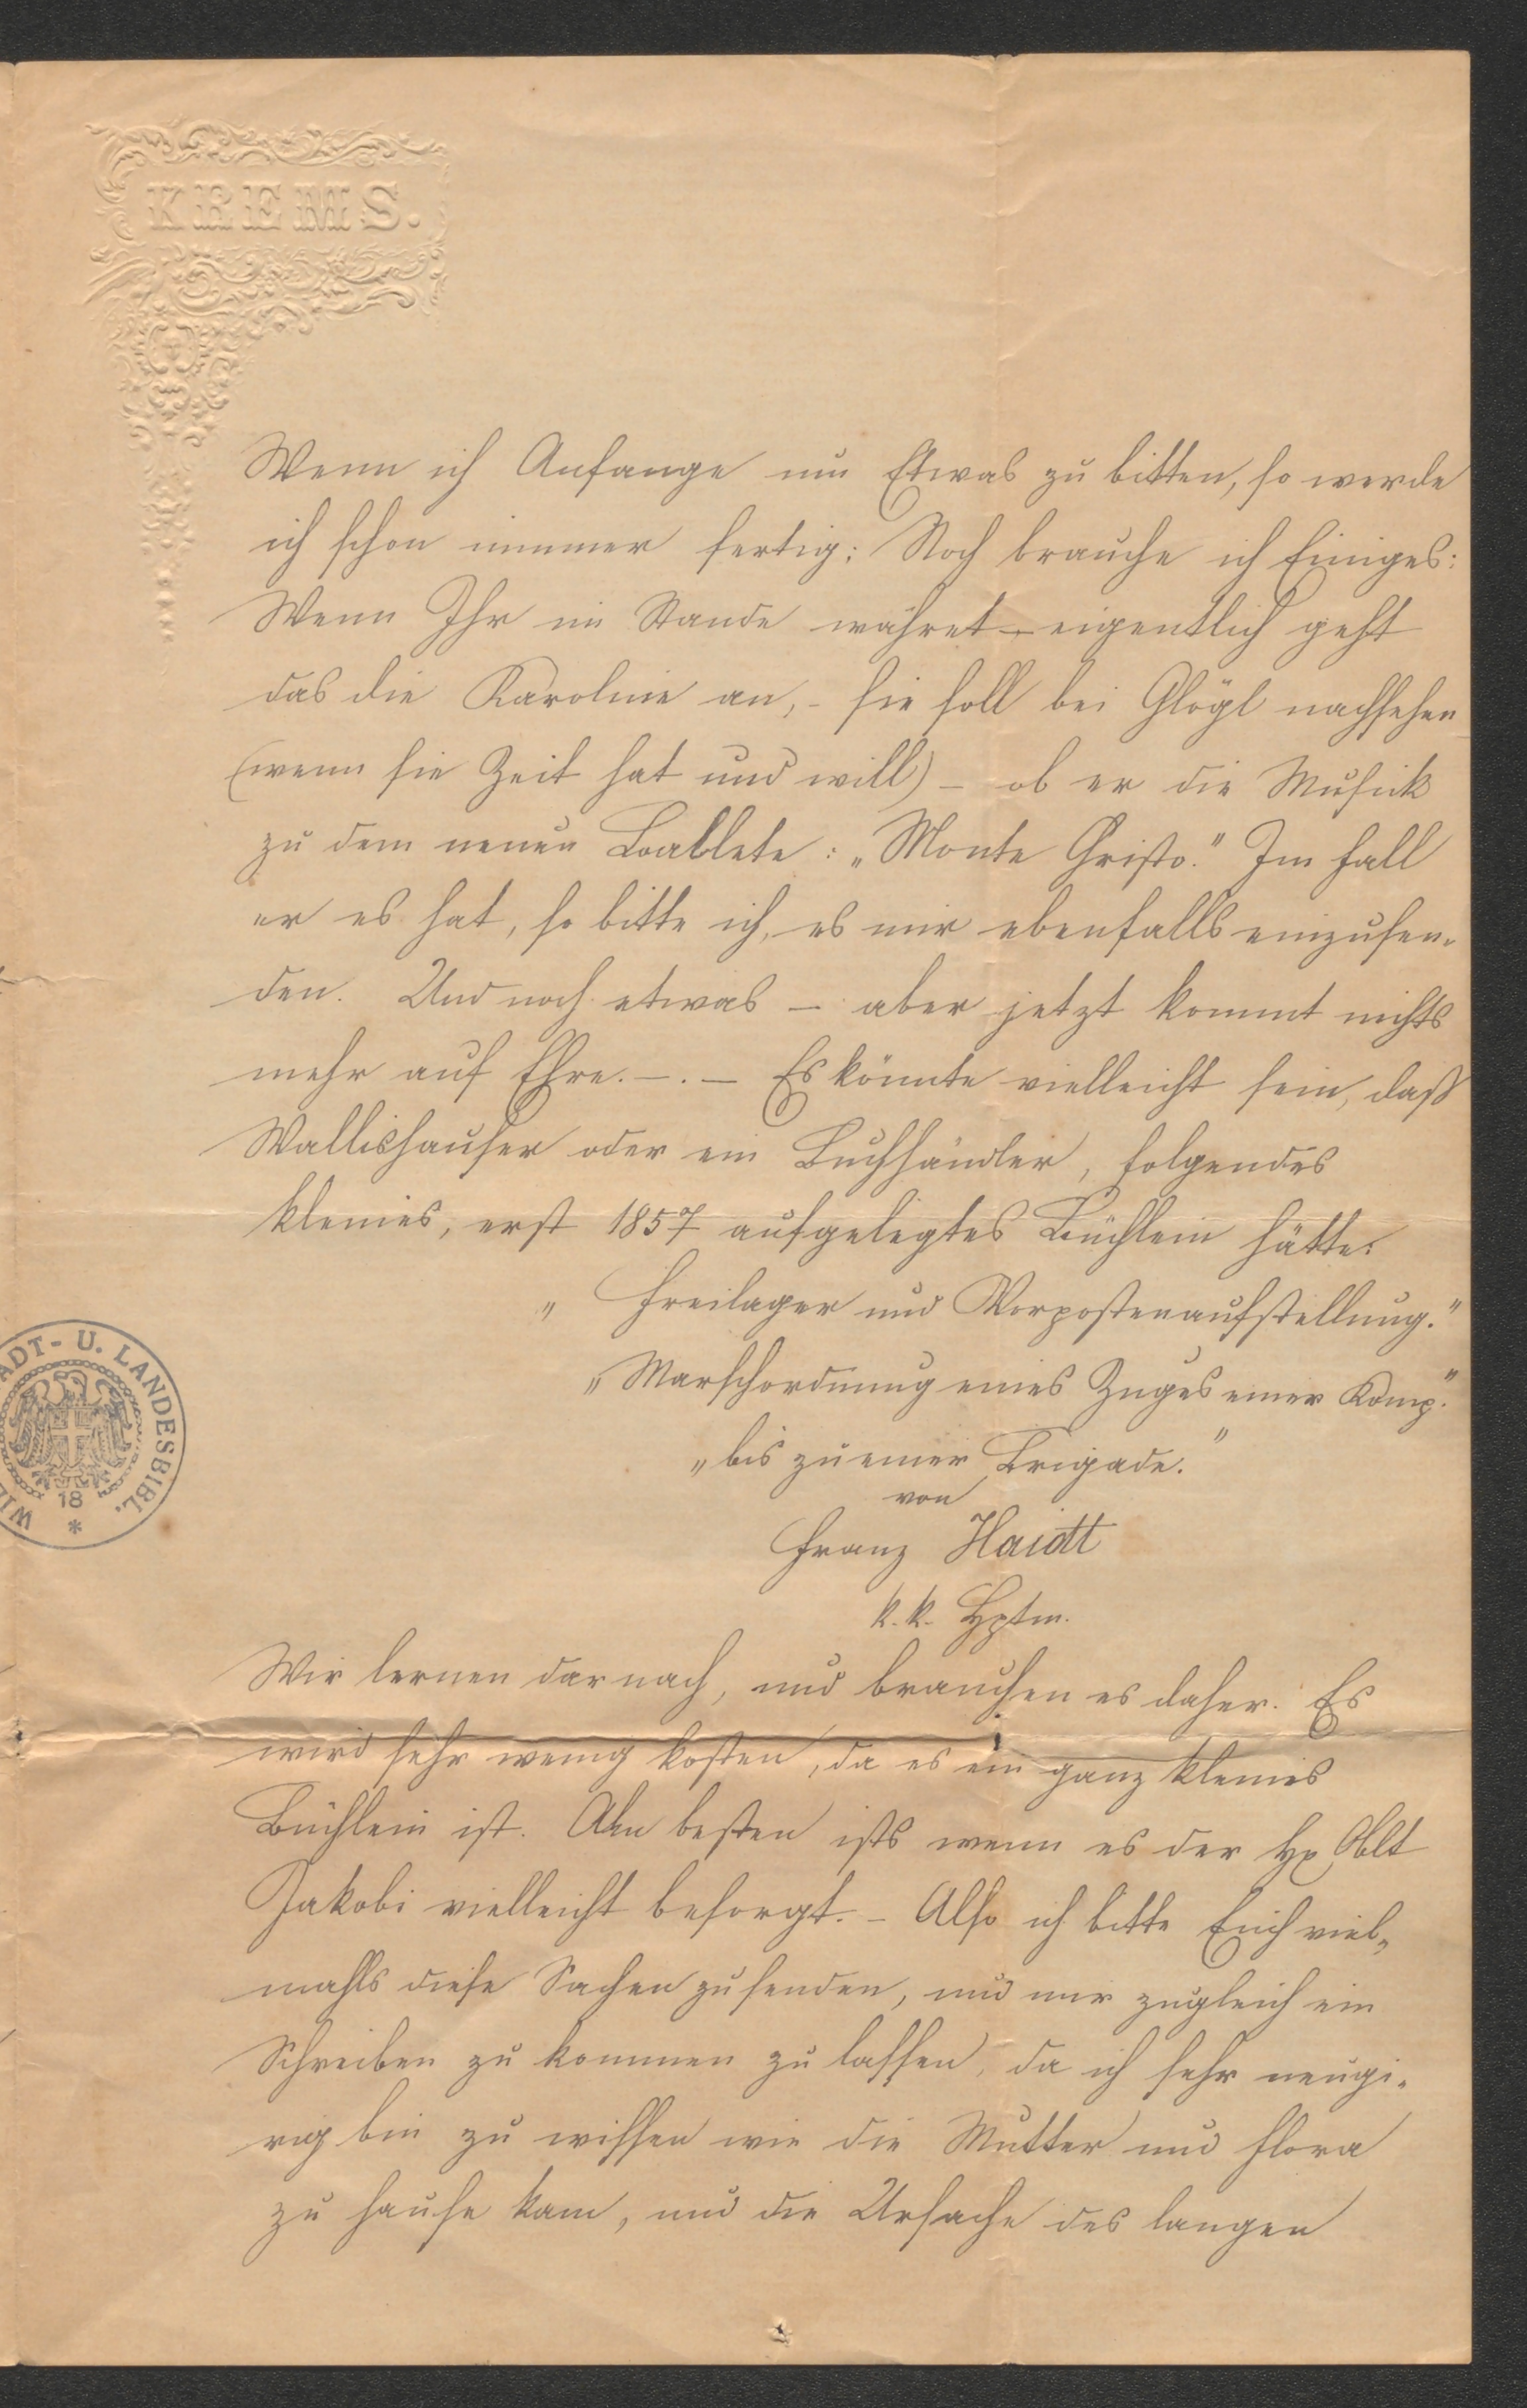 KREMS.
Wenn ich Anfange um Etwas zu bitten, so werde
ich schon nimmer fertig: Noch brauche ich Einiges:
Wenn Ihr im Stande währet – eigentlich geht
das die Karoline an, – sie soll bei Glögl nachsehen
(wenn sie Zeit hat und will) – ob er die Musick
zu dem neuen Ballete: „Monte Christo." Im Fall
er es hat, so bitte ich, es mir ebenfalls einzusen-
den. Und noch etwas – aber jetzt kommt nichts
mehr auf Ehre. –. – Es könnte vielleicht sein, daß
Wallishauser oder ein Buchhändler, folgendes
kleines, erst 1857 aufgelegtes Büchlein hätte:
„Freilager und Vorpostenaufstellung."
„Marschordnung eines Zuges einer Komp."
„bis zu einer Brigade."
von
Franz Haidt
k. k. Hptm.
Wir lernen darnach, und brauchen es daher. Es
wird sehr wenig kosten, da es ein ganz kleines
Büchlein ist. Am besten ists wenn es der Hr Oblt
Jakobi vielleicht besorgt. – Also ich bitte Euch viel-
mahls diese Sachen zu senden, und mir zugleich ein
Schreiben zu kommen zu lassen, da ich sehr neugi-
rig bin zu wissen wie die Mutter und Flora
zu Hause kam, und die Ursache des langen
STADT- U. LANDESBIBL.
WIEN
18